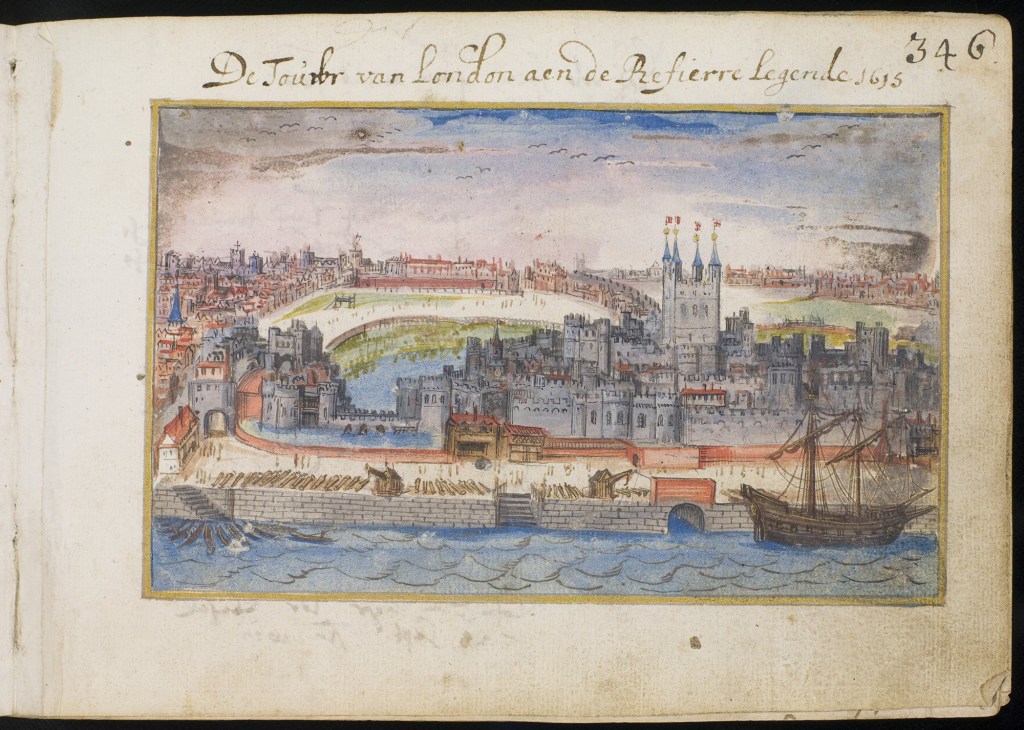 346
De Tourbr van London aen de Refierre legende 1615